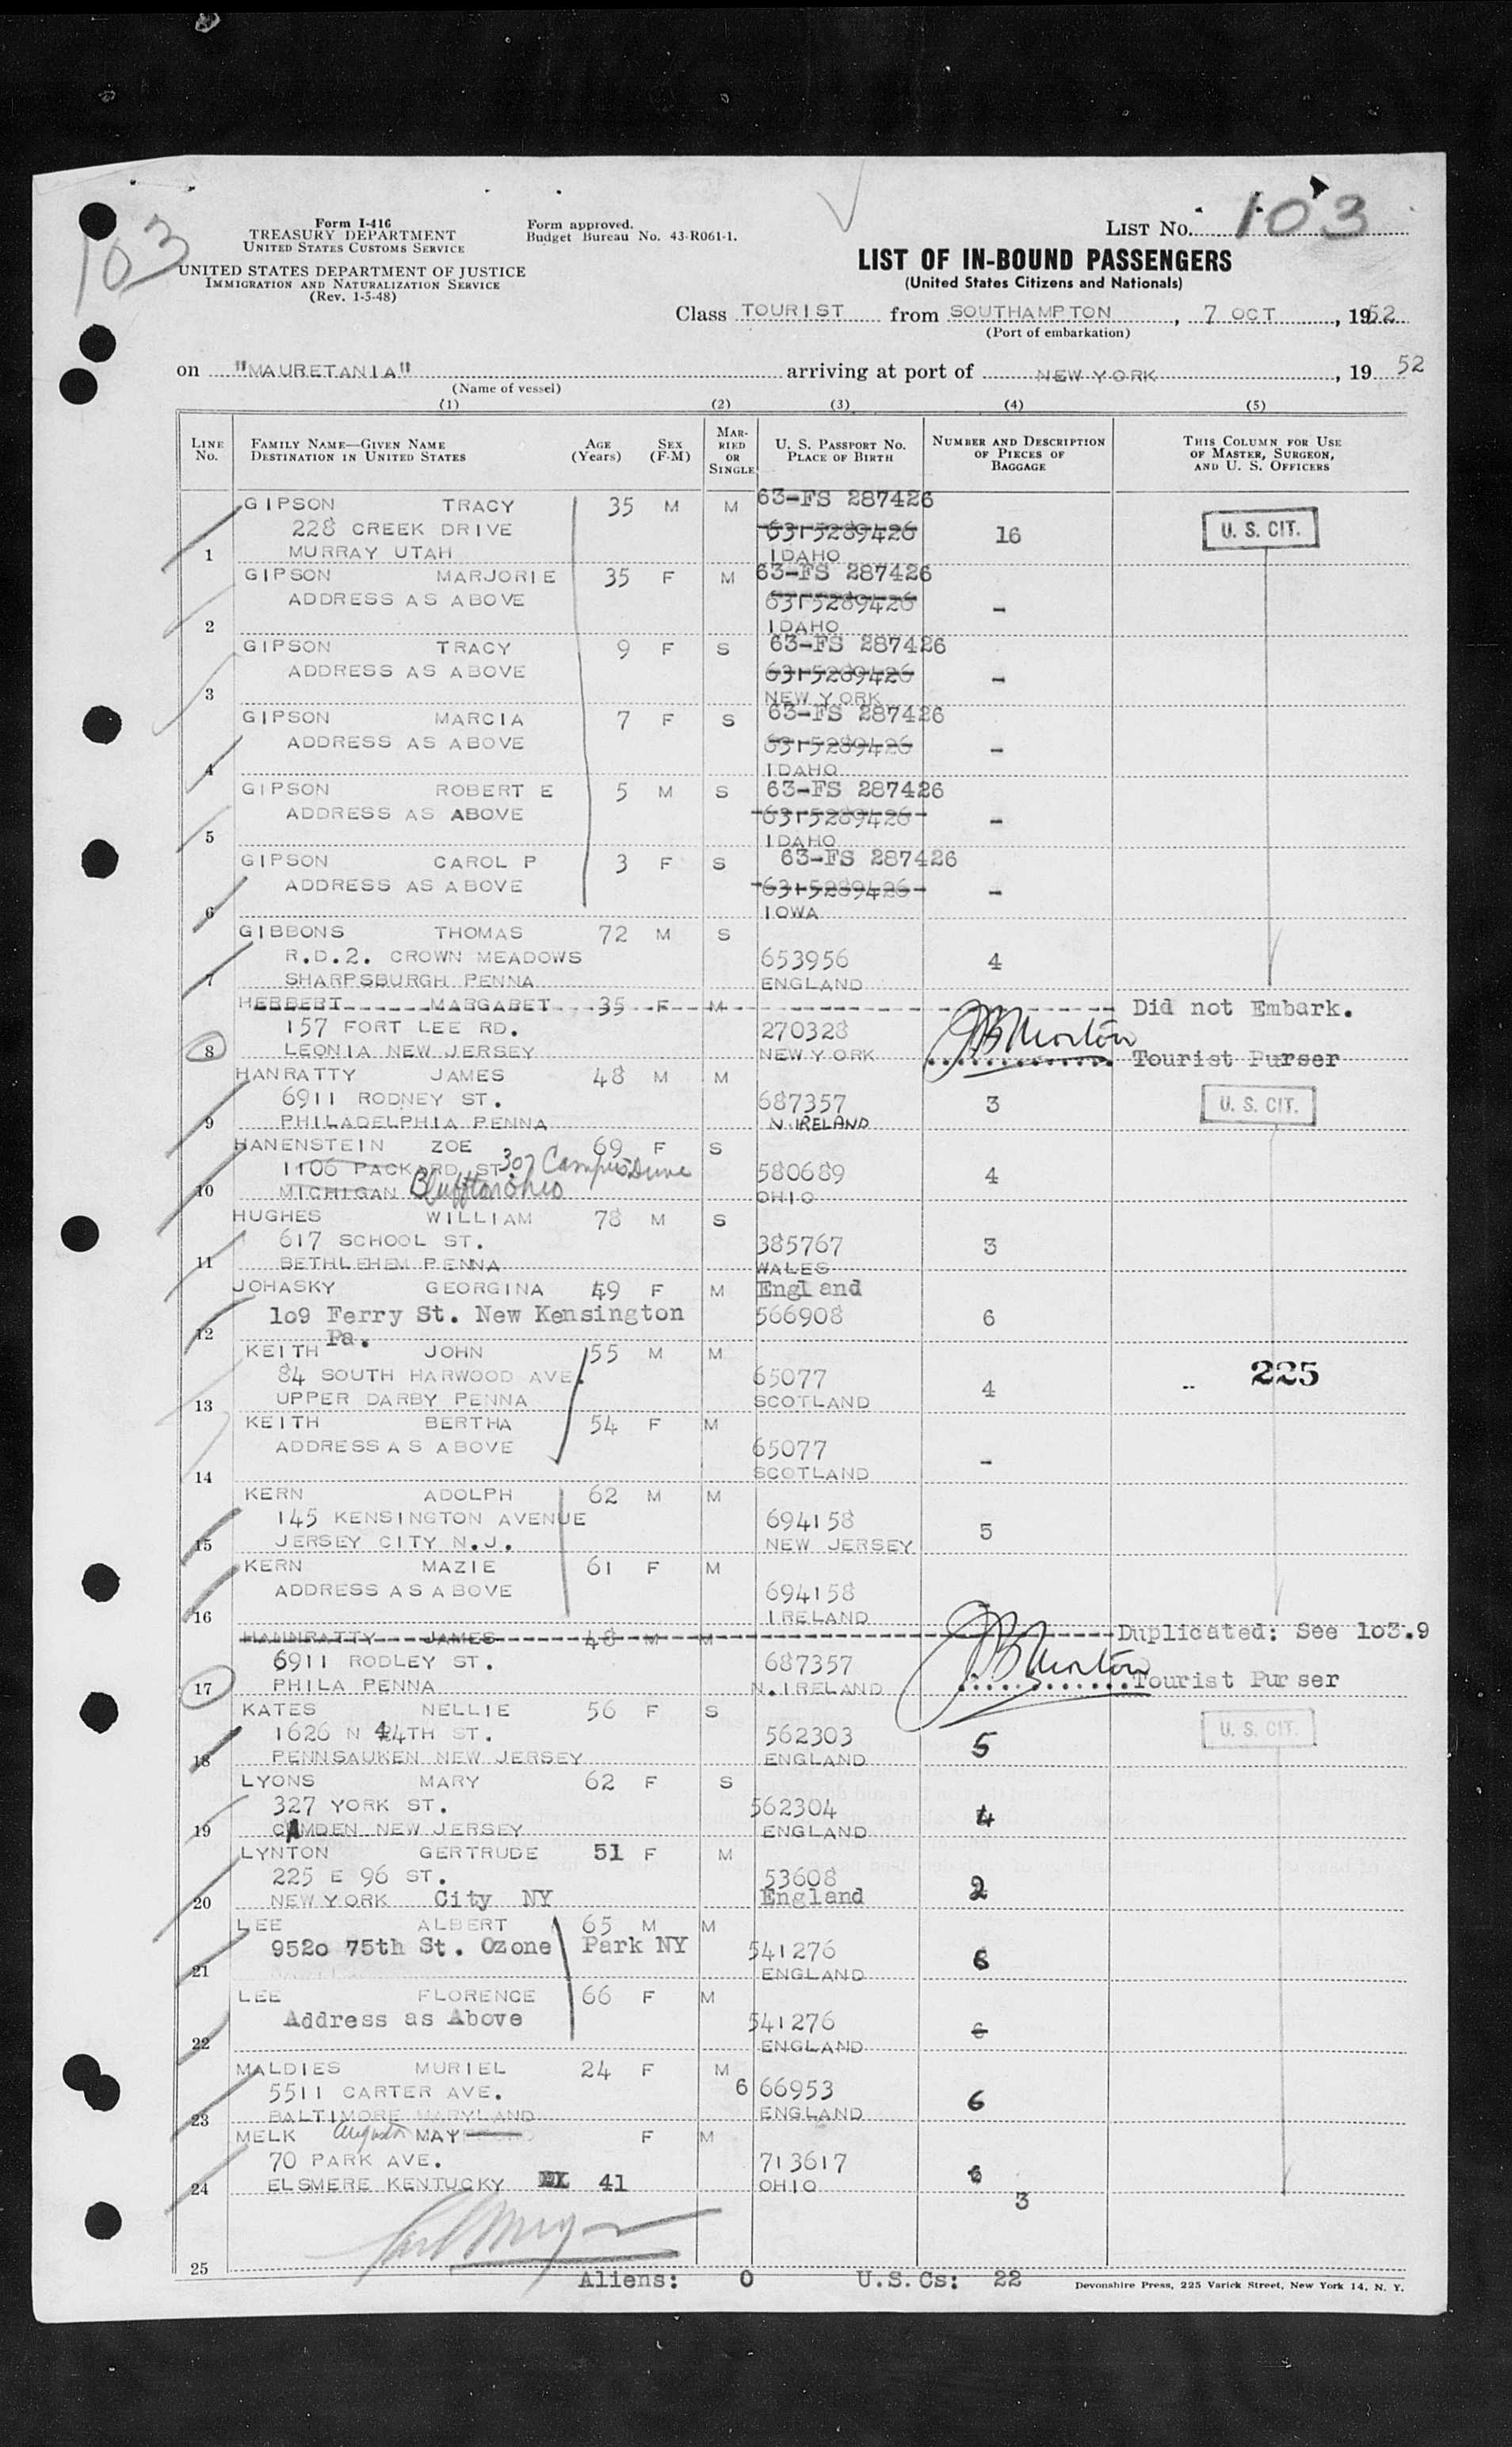 103
Form I-416
TREASURY DEPARTMENT
UNITED STATES CUSTOMS SERVICE
UNITED STATES DEPARTMENT OF JUSTICE
IMMIGRATION AND NATURALIZATION SERVICE
(Rev. 1-5-48)
Form approved.
Budget Bureau No. 43-R061-1.
LIST NO. 103
LIST OF IN-BOUND PASSENGERS
(United States Citizens and Nationals)
Class TOURIST from SOUTHAMPTON, 7 OCT, 1952
(Port of embarkation)
on "MAURETANIA" arriving at port of NEW YORK, 19 52
(Name of vessel)
(1) (2) (3) (4) (5)
LINE NO. FAMILY NAME—GIVEN NAME DESTINATION IN UNITED STATES AGE (Years) SEX (F-M) MARRIED OR SINGLE U. S. PASSPORT NO. PLACE OF BIRTH NUMBER AND DESCRIPTION OF PIECES OF BAGGAGE THIS COLUMN FOR USE OF MASTER, SURGEON, AND U. S. OFFICERS
GIPSON TRACY 35 M M 63-FS 287426
228 CREEK DRIVE 6315289426 16 U. S. CIT.
1 MURRAY UTAH IDAHO
GIPSON MARJORIE 35 F M 63-FS 287426
ADDRESS AS ABOVE 6315289426 -
2 IDAHO
GIPSON TRACY 9 F S 63-FS 287426
ADDRESS AS ABOVE 6315289426 -
3 NEW YORK
GIPSON MARCIA 7 F S 63-FS 287426
ADDRESS AS ABOVE 6315289426 -
4 IDAHO
GIPSON ROBERT E 5 M S 63-FS 287426
ADDRESS AS ABOVE 6315289426 -
5 IDAHO
GIPSON CAROL P 3 F S 63-FS 287426
ADDRESS AS ABOVE 6315289426 -
6 IOWA
GIBBONS THOMAS 72 M S
R.D.2. CROWN MEADOWS 653956 4
7 SHARPSBURGH PENNA ENGLAND
HERBERT MARGARET 35 F M Did not Embark.
157 FORT LEE RD. 270328 JB Morton
8 LEONIA NEW JERSEY NEW YORK Tourist Purser
HANRATTY JAMES 48 M M
6911 RODNEY ST. 687357 3 U. S. CIT.
9 PHILADELPHIA PENNA N. IRELAND
HANENSTEIN ZOE 69 F S
1106 PACKARD ST 307 Campus Drive 580689 4
10 MICHIGAN Bluffton Ohio OHIO
HUGHES WILLIAM 78 M S
617 SCHOOL ST. 385767 3
11 BETHLEHEM PENNA WALES
JOHASKY GEORGINA 49 F M England
109 Ferry St. New Kensington 566908 6
12 Pa.
KEITH JOHN 55 M M
84 SOUTH HARWOOD AVE. 65077 4 225
13 UPPER DARBY PENNA SCOTLAND
KEITH BERTHA 54 F M
ADDRESS AS ABOVE 65077 -
14 SCOTLAND
KERN ADOLPH 62 M M
145 KENSINGTON AVENUE 694158 5
15 JERSEY CITY N.J. NEW JERSEY
KERN MAZIE 61 F M
ADDRESS AS ABOVE 694158 -
16 IRELAND
HANNRATTY JAMES 48 M M Duplicated: See 103.9
6911 RODLEY ST. 687357 JB Morton
17 PHILA PENNA N. IRELAND Tourist Purser
KATES NELLIE 56 F S
1626 N 44TH ST. 562303 5 U. S. CIT.
18 PENNSAUKEN NEW JERSEY ENGLAND
LYONS MARY 62 F S
327 YORK ST. 562304 4
19 CAMDEN NEW JERSEY ENGLAND
LYNTON GERTRUDE 51 F M
225 E 96 ST. 53608 2
20 NEW YORK City NY England
LEE ALBERT 65 M M
9520 75th St. Ozone Park NY 541276 6
21 ENGLAND
LEE FLORENCE 66 F M
Address as Above 541276 6
22 ENGLAND
MALDIES MURIEL 24 F M
5511 CARTER AVE. 666953 6
23 BALTIMORE MARYLAND ENGLAND
MELK MAY F M
70 PARK AVE. 713617 6
24 ELSMERE KENTUCKY 41 OHIO
3
25
Aliens: 0 U.S.Cs: 22
Devonshire Press, 225 Varick Street, New York 14, N. Y.